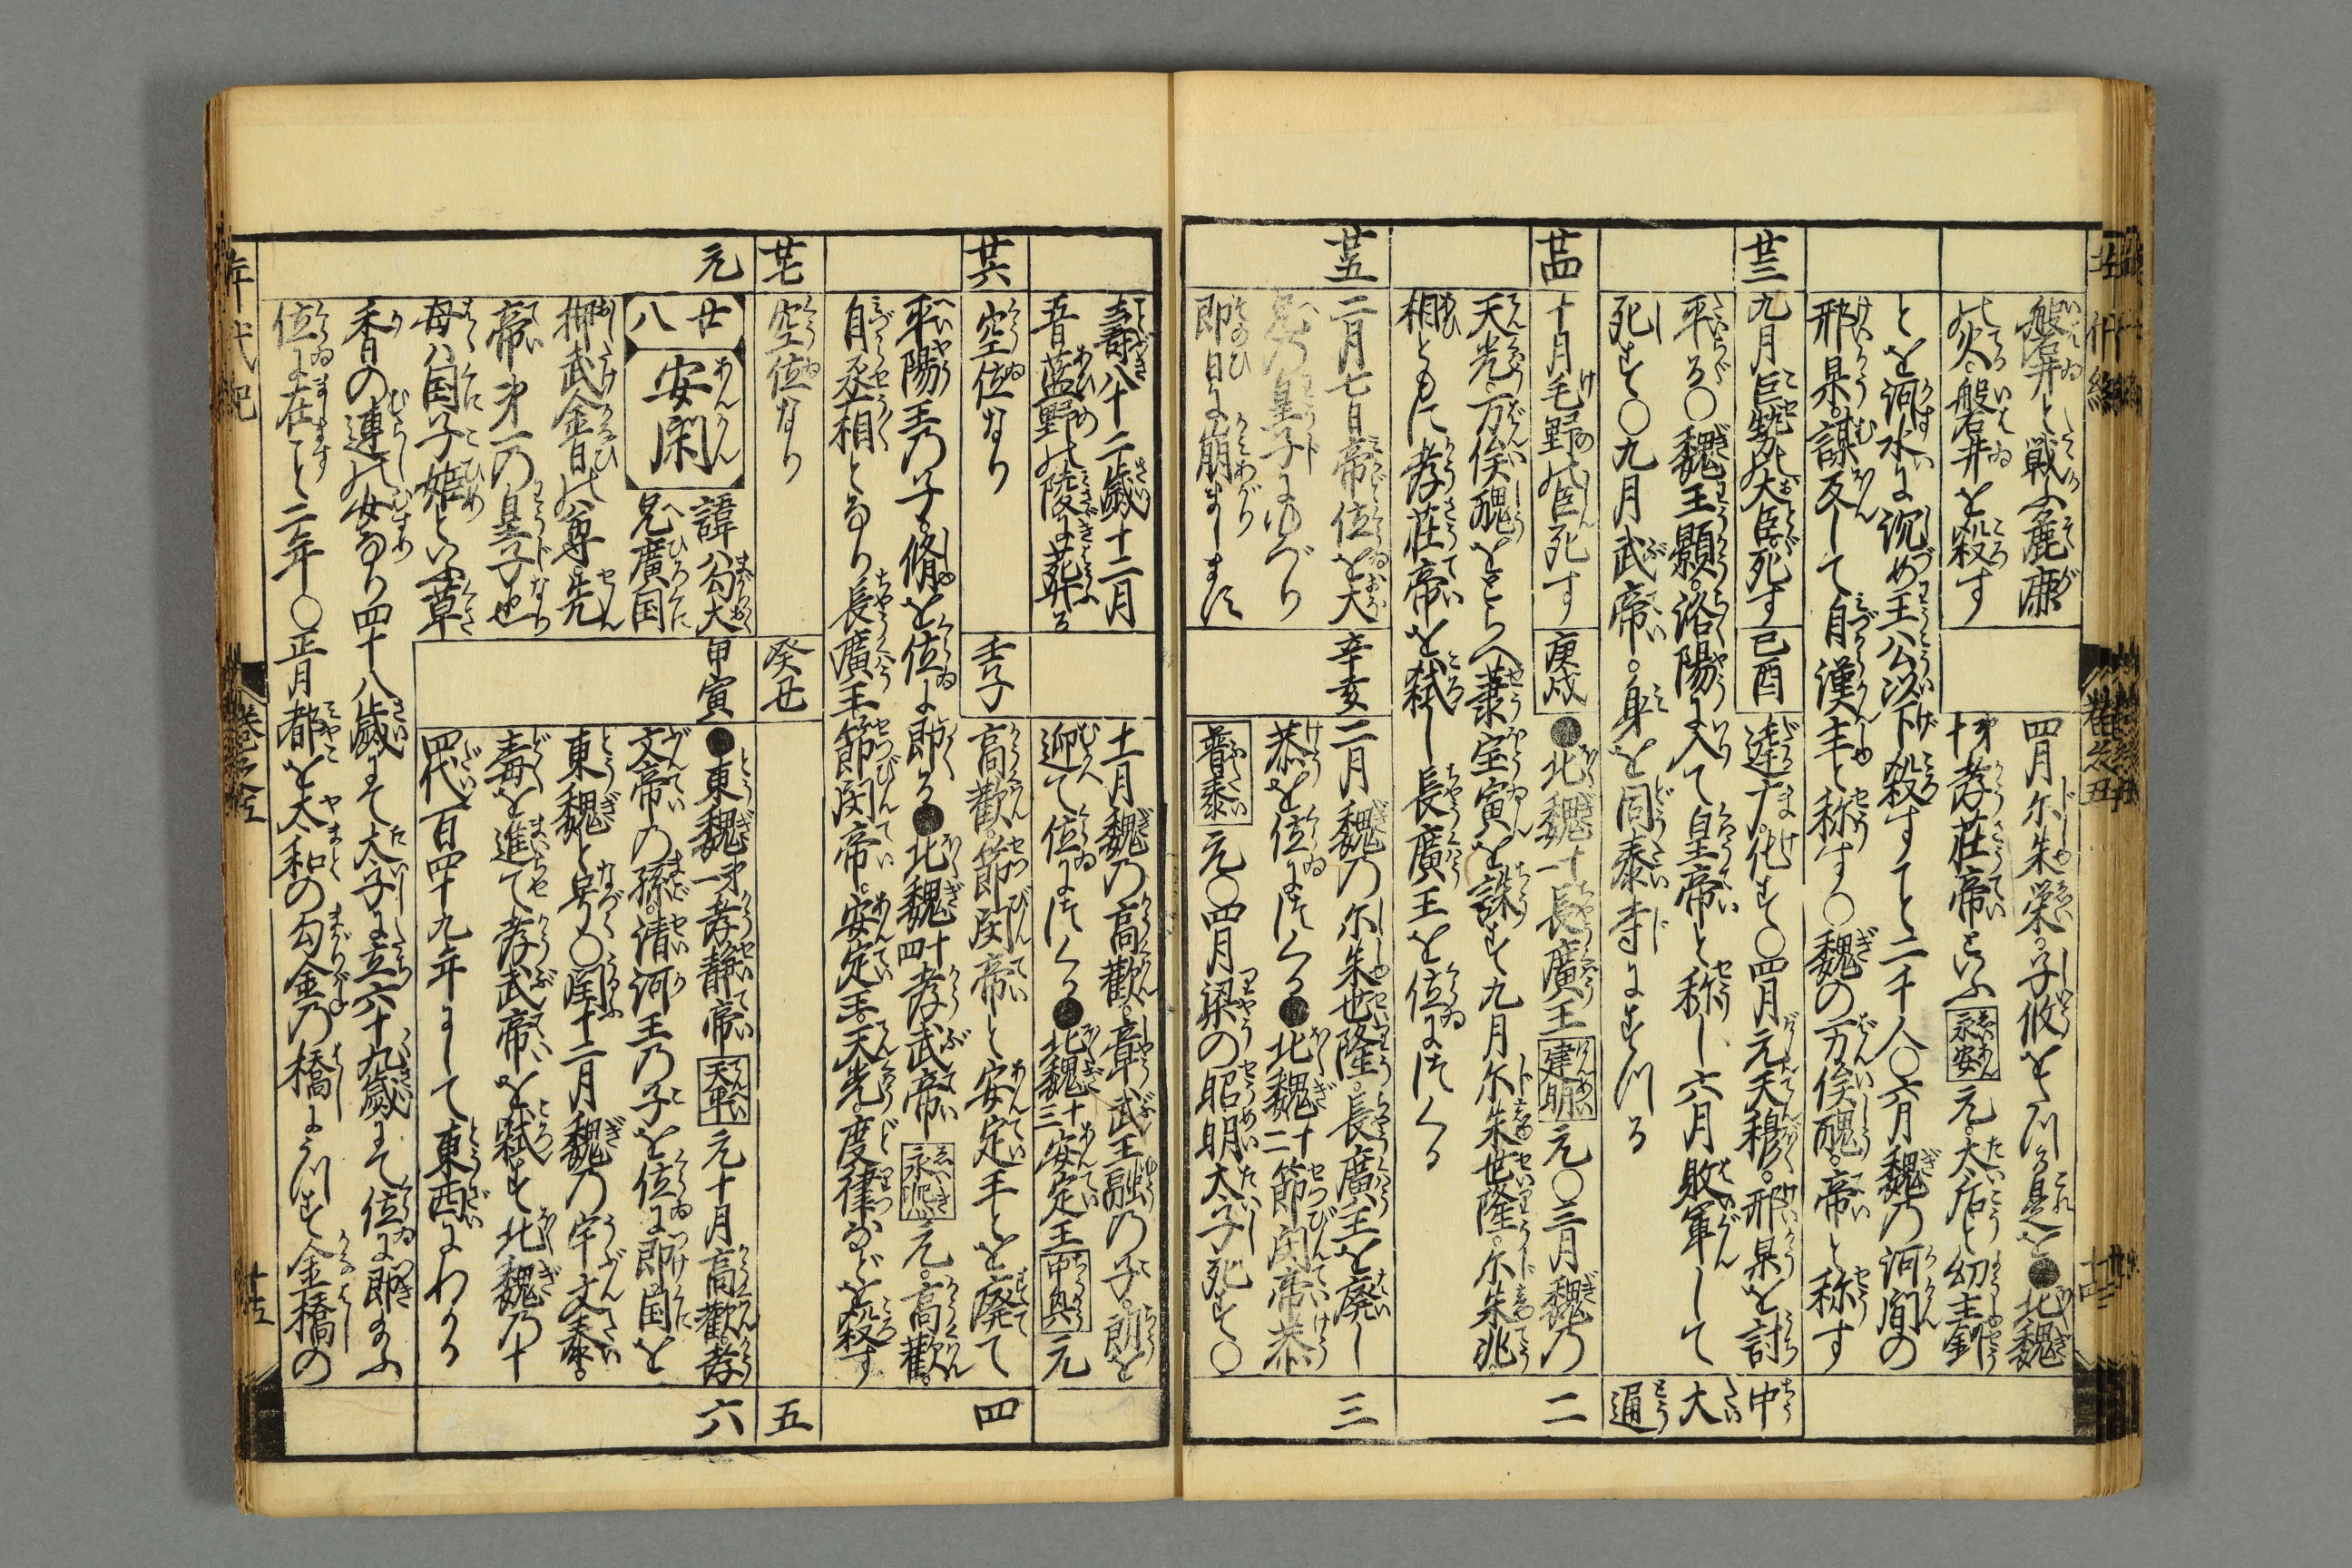 磐井と戦ふ麁鹿
の火磐井を殺す
四月尓朱栄子攸をたつる是を●北魏
十孝荘帝といふ永安元太后と幼主釗
とを河水に沈め王公以下殺すこと二千人〇六月魏乃河間の
邢杲謀反して自漢主と称す〇魏の万俟醜帝と称す
廿三
九月巨勢大臣死す
己酉
達ナ化す〇四月元天穆邢杲を討
平る〇魏王顥洛陽に入て皇帝と称し六月敗軍して
死す〇九月武帝身を同泰寺にすつる
中
大
通
廿四
十月毛野の臣死す
庚戌
●北魏十一長廣王建明元〇三月魏乃
天光万俟醜をとらへ蕭宝寅を誅す九月尓朱世隆尓朱兆
相ともに孝荘帝を弑し長廣王を位につくる
二
廿五
二月七日帝位を大
兄乃皇子にゆづり
即日に崩まします
辛亥
二月魏乃尓朱世隆長廣王を廃し
恭を位につくる●北魏十二節閔帝恭
普泰元〇四月梁の昭明太子死す〇
三
壽八十二歳十二月
五日藍野の陵に葬る
十一月魏乃高歡章武王融の子朗を
迎て位につくる●北魏十三安定王中興元
廿六
空位なり
壬子
高歡節閔帝と安定王とを廃て
平陽王乃子脩を位に即る●北魏十四孝武帝永熙元高歡
自丞相となり長廣王節閔帝安定王天光度律などを殺す
四
廿七
空位なり
癸丑
五
元
廿八
安閑
諱ハ勾大
兄廣国
押武金日の尊先
帝第一の皇子也
母ハ国子姫といふ草
香の連の女なり四十八歳にて太子に立六十九歳にて位に即給ふ
位に在こと二年〇正月都を大和の勾金乃橋にうつす金橋の
甲寅
●東魏第一孝静帝天平元十月高歡孝
文帝の孫清河王乃子を位に即国を
東魏と号〇閏十二月魏乃宇文泰
毒を進て孝武帝を弑す北魏乃十
四代百四十九年にして東西にわかる
六
年代紀
巻之五
十五